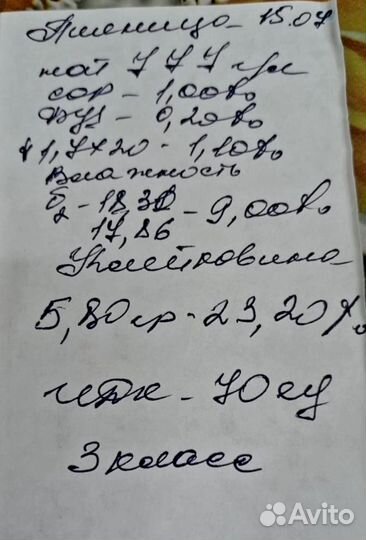 Пшеница - 15.07
нат 777 гр/л
сор - 1,00%
фуз - 0,20%
1,7х20 - 1,10%
Влажность
18,32 - 9,00%
17,86
Клейковина
5,80 гр - 23,20%
идк - 70 ед
3 класс
Avito